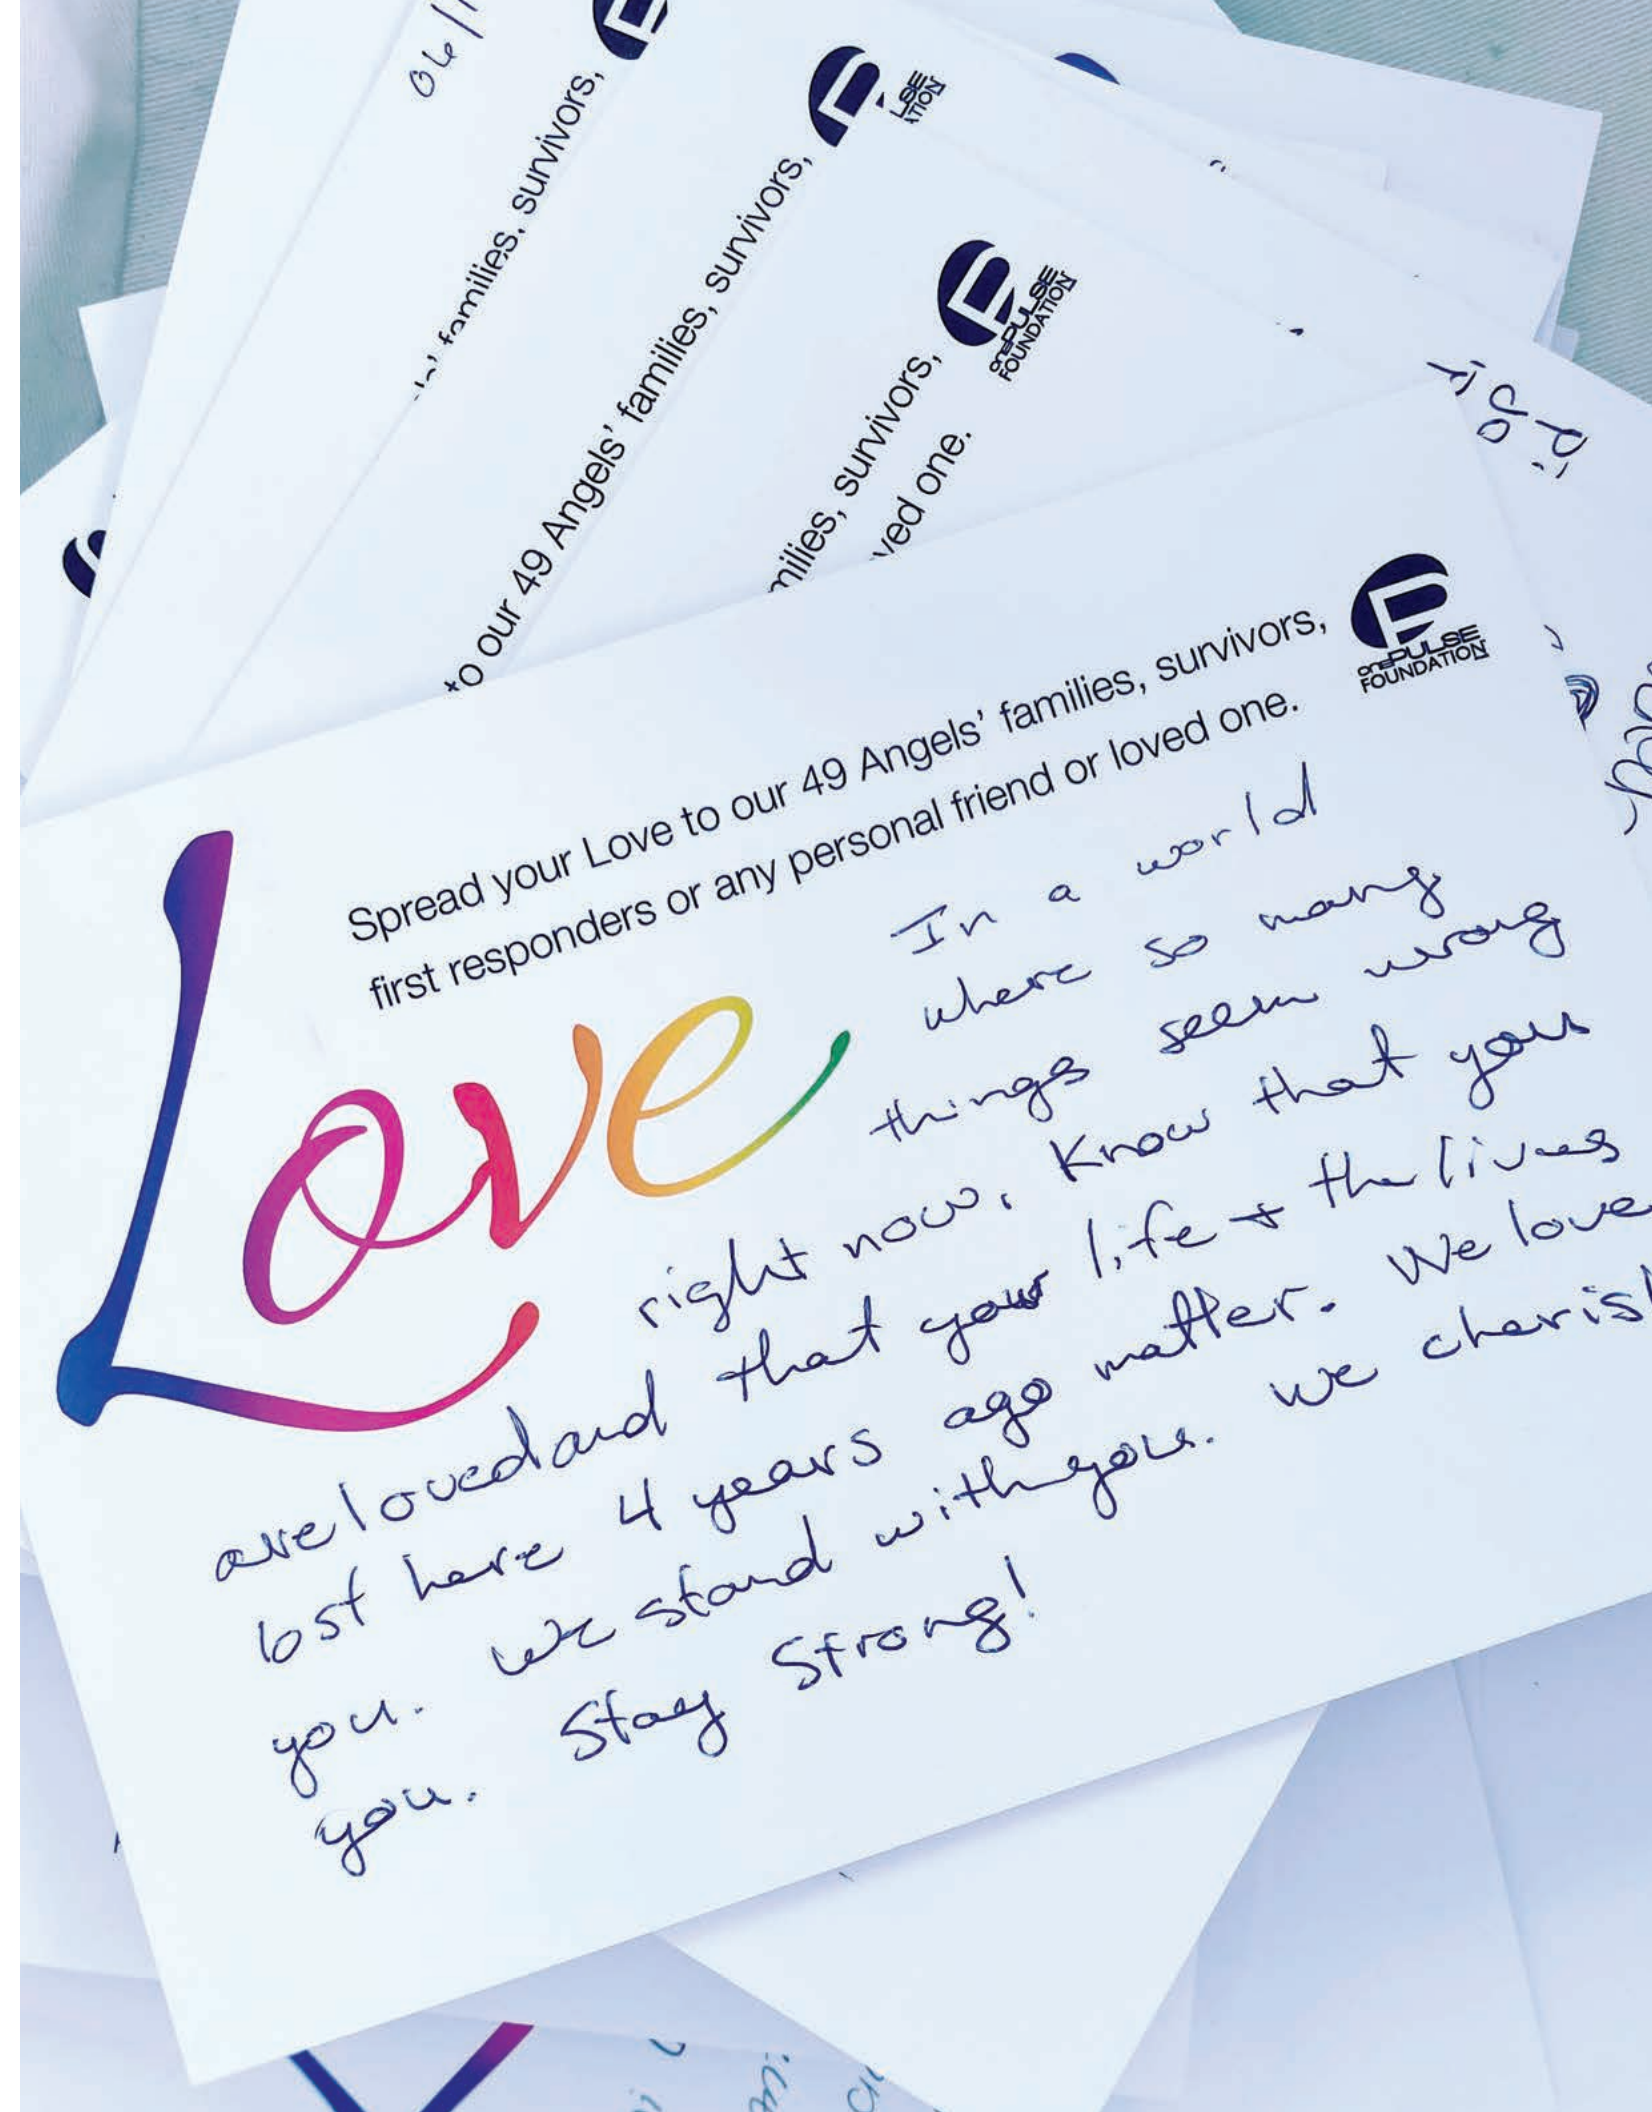 06/
families, survivors,
LSE
ATION
to our 49 Angels' families, survivors,
onePULSE
FOUNDATION
milies, survivors,
ved one.
onePULSE
FOUNDATION
Spread your Love to our 49 Angels' families, survivors,
first responders or any personal friend or loved one.
Love
In a world
where so many
things seem wrong
right now. Know that you
are loved and that your life + the lives
lost here 4 years ago matter. We love
you. We stand with you. We cherish
you. Stay Strong!